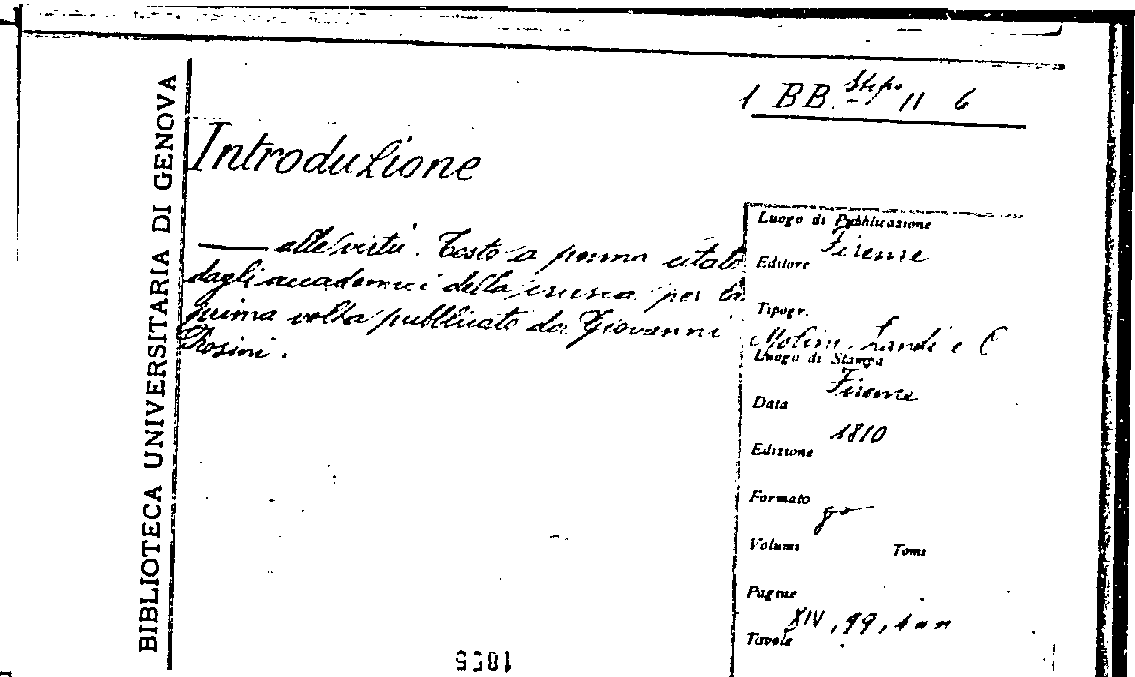 1 BB. Stipo 11 6
BIBLIOTECA UNIVERSITARIA DI GENOVA
Introduzione
alle virtù. Testo a penna citato
dagli accademici della crusca per la
prima volta pubblicato da Giovanni
Rosini.
Luogo di Pubblicazione
Firenze
Editore
Tipogr.
Molini, Landi e C
Luogo di Stampa
Firenze
Data
1810
Edizione
Formato
8º
Volumi Tomi
Pagine
XIV, 99, 1 n n
Tavole